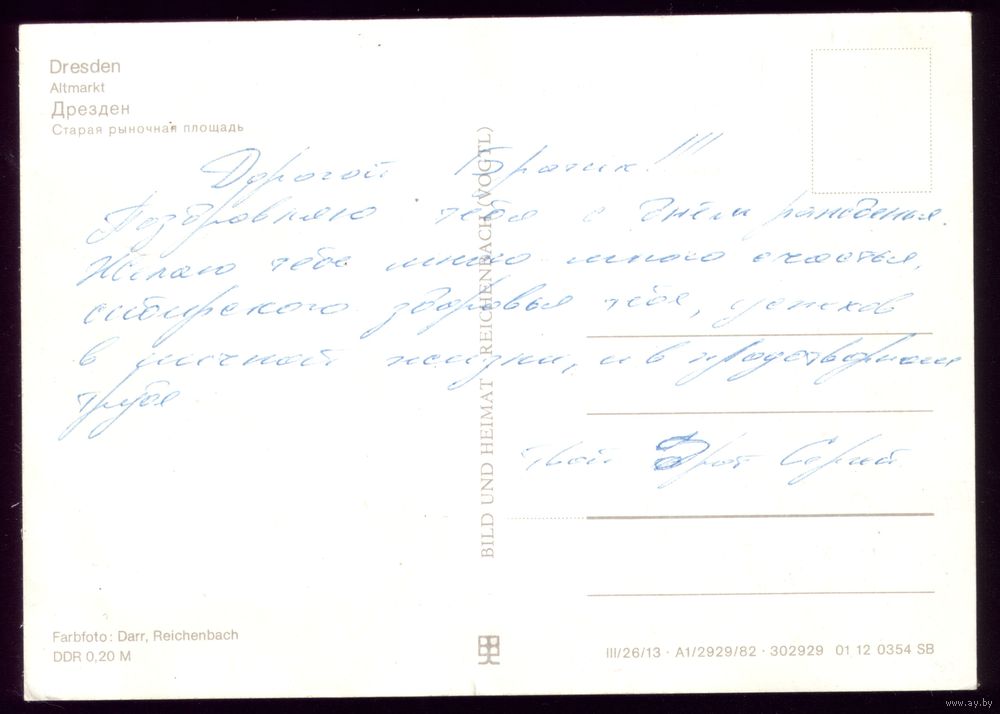 Dresden
Altmarkt
Дрезден
Старая рыночная площадь
Дорогой Братик!!!
Поздравляю тебя с днём рождения.
Желаю тебе много много счастья,
сибирского здоровья тебе, успехов
в личной жизни, и в плодотворном
труде
Твой Брат Сергей
BILD UND HEIMAT REICHENBACH (VOGTL)
Farbfoto: Darr, Reichenbach
DDR 0,20 M
III/26/13 · A1/2929/82 · 302929 01 12 0354 SB
www.ay.by